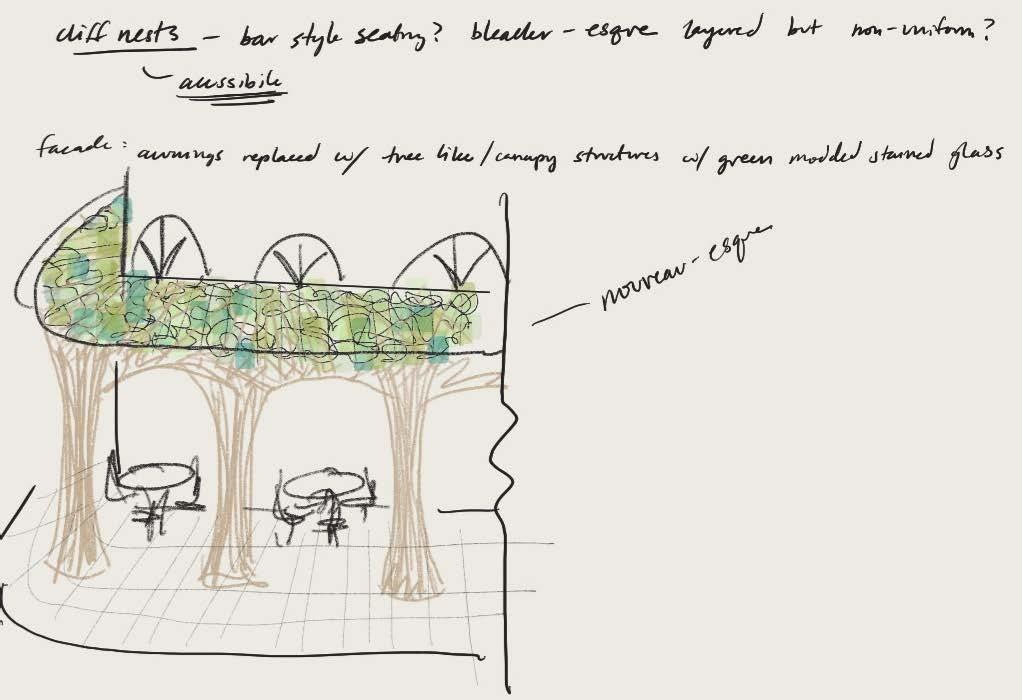 cliff nests – bar style seating? bleacher-esque layered but non-uniform?
accessible
facade: awnings replaced w/ tree like/canopy structures w/ green modded stained glass
nouveau-esque